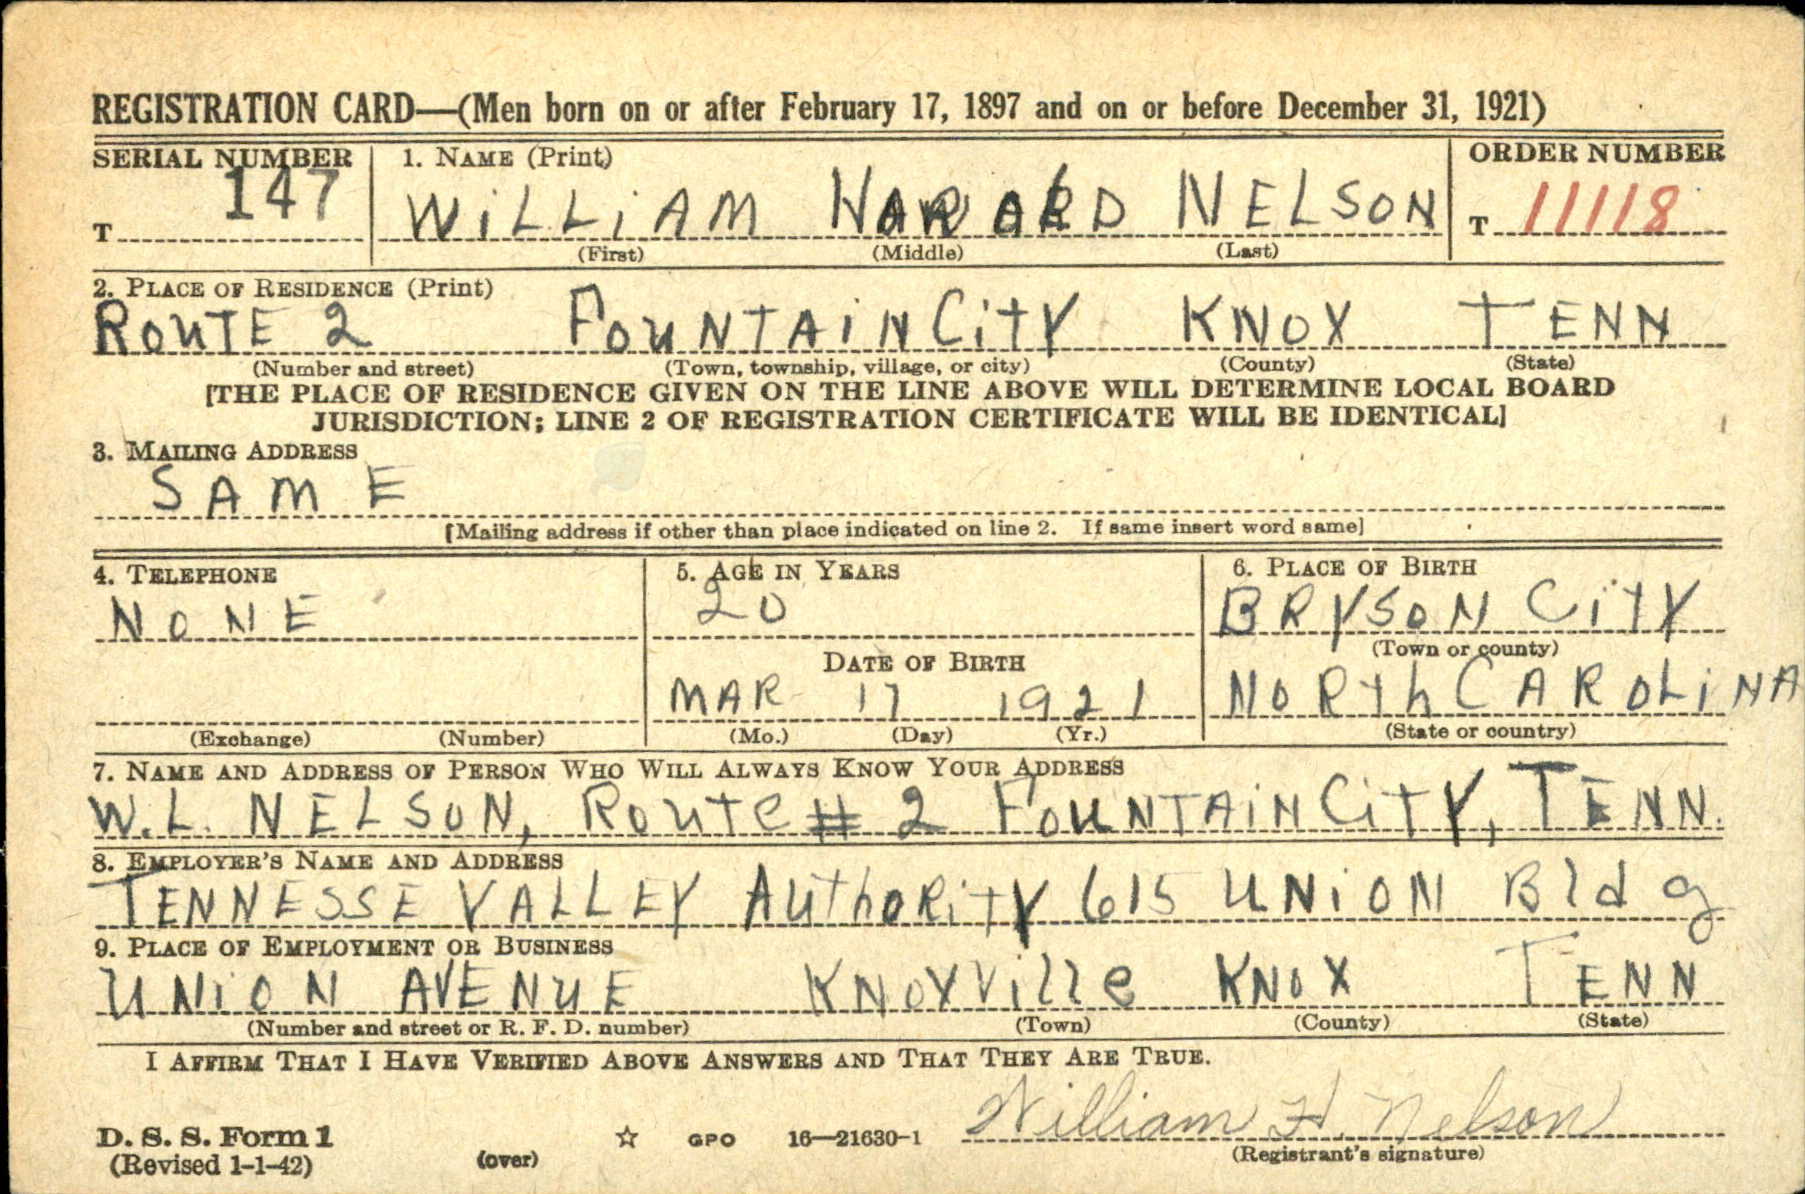 REGISTRATION CARD—(Men born on or after February 17, 1897 and on or before December 31, 1921)
SERIAL NUMBER 1. NAME (Print) ORDER NUMBER
T 147 WiLLiAM NELSON T 11118
(First) (Middle) (Last)
2. PLACE OF RESIDENCE (Print)
ROUTE 2 FOUNTAIN CiTY KNOX TENN
(Number and street) (Town, township, village, or city) (County) (State)
[THE PLACE OF RESIDENCE GIVEN ON THE LINE ABOVE WILL DETERMINE LOCAL BOARD
JURISDICTION; LINE 2 OF REGISTRATION CERTIFICATE WILL BE IDENTICAL]
3. MAILING ADDRESS
SAME
[Mailing address if other than place indicated on line 2. If same insert word same]
4. TELEPHONE 5. AGE IN YEARS 6. PLACE OF BIRTH
NONE 20 BRYSON CiTY
(Town or county)
DATE OF BIRTH
MAR 17 1921 NORTh CAROLiNA
(Exchange) (Number) (Mo.) (Day) (Yr.) (State or country)
7. NAME AND ADDRESS OF PERSON WHO WILL ALWAYS KNOW YOUR ADDRESS
W.L. NELSON, ROUTE # 2 FOUNTAIN CiTY, TENN.
8. EMPLOYER'S NAME AND ADDRESS
TENNESSE VALLEY AUThORiTY 615 UNiON Bldg
9. PLACE OF EMPLOYMENT OR BUSINESS
UNiON AVENUE KNOXVille KNOX TENN
(Number and street or R. F. D. number) (Town) (County) (State)
I AFFIRM THAT I HAVE VERIFIED ABOVE ANSWERS AND THAT THEY ARE TRUE.
William H. Nelson
D. S. S. Form 1 (over) ☆ GPO 16—21630-1 (Registrant's signature)
(Revised 1-1-42)